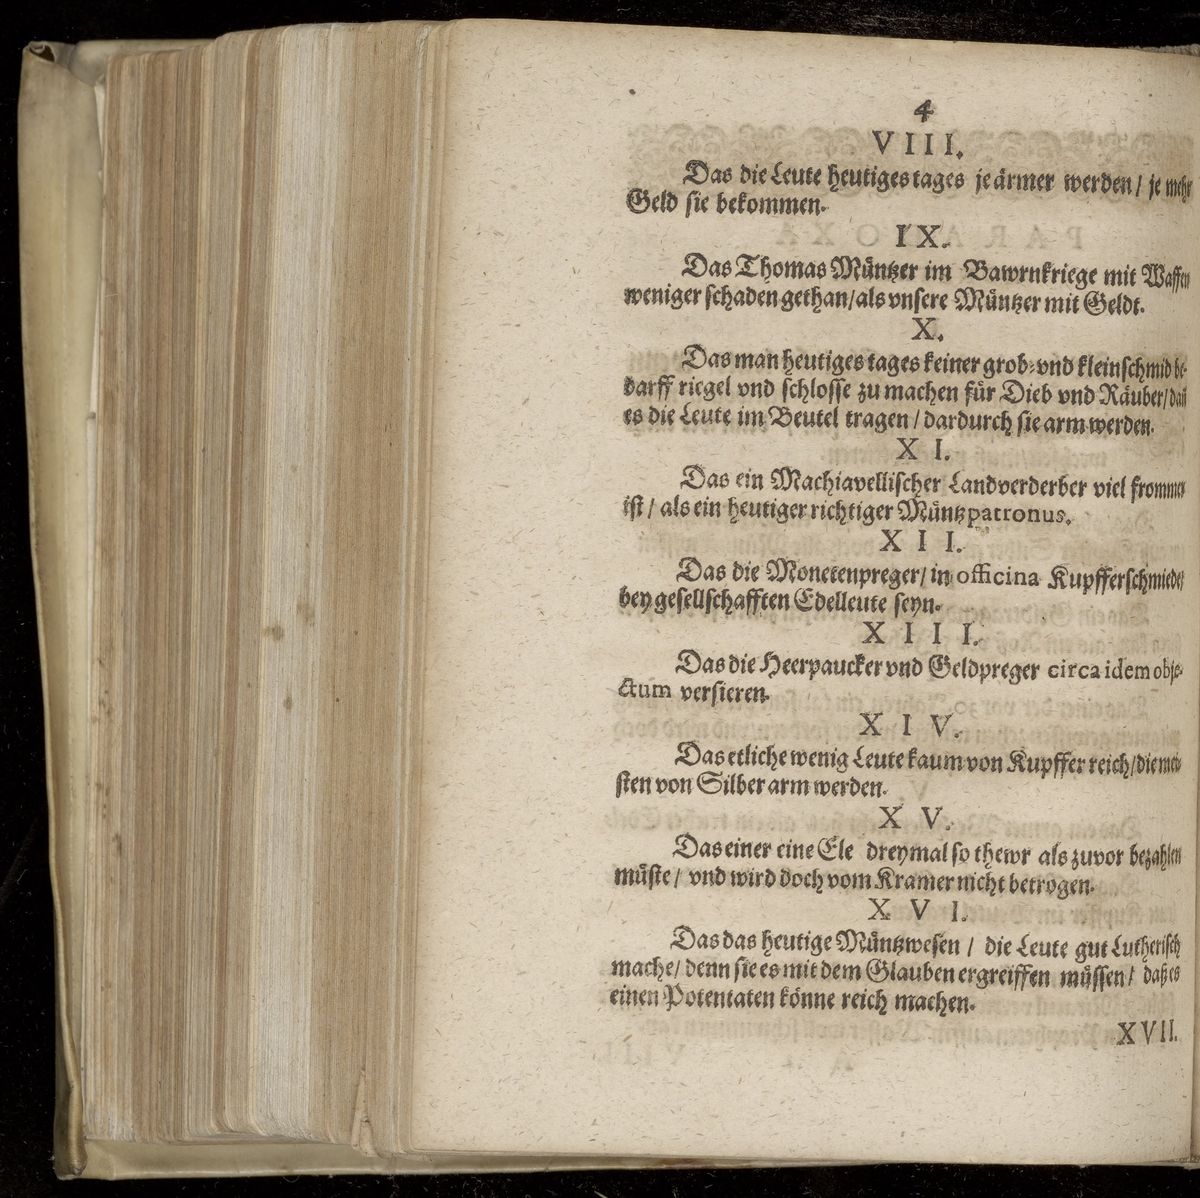 4
VIII.
Das die Leute heutiges tages je ärmer werden / je mehr
Geld sie bekommen.
IX.
Das Thomas Müntzer im Bawrnkriege mit Waffen
weniger schaden gethan / als vnsere Müntzer mit Geldt.
X.
Das man heutiges tages keiner grob- vnd kleinschmid be-
darff riegel vnd schlosse zu machen für Dieb vnd Räuber / dañ
es die Leute im Beutel tragen / dardurch sie arm werden.
XI.
Das ein Machiavellischer Landverderber viel frommer
ist / als ein heutiger richtiger Müntzpatronus.
XII.
Das die Monetenpreger / in officina Kupfferschmiede /
bey gesellschafften Edelleute seyn.
XIII.
Das die Heerpaucker vnd Geldpreger circa idem obje-
ctum versieren.
XIV.
Das etliche wenig Leute kaum von Kupffer reich / die mei-
sten von Silber arm werden.
XV.
Das einer eine Ele dreymal so thewr als zuvor bezahlen
müste / vnd wird doch vom Kramer nicht betrogen.
XVI.
Das das heutige Müntzwesen / die Leute gut Lutherisch
mache / denn sie es mit dem Glauben ergreiffen müssen / daß es
einen Potentaten könne reich machen.
XVII.